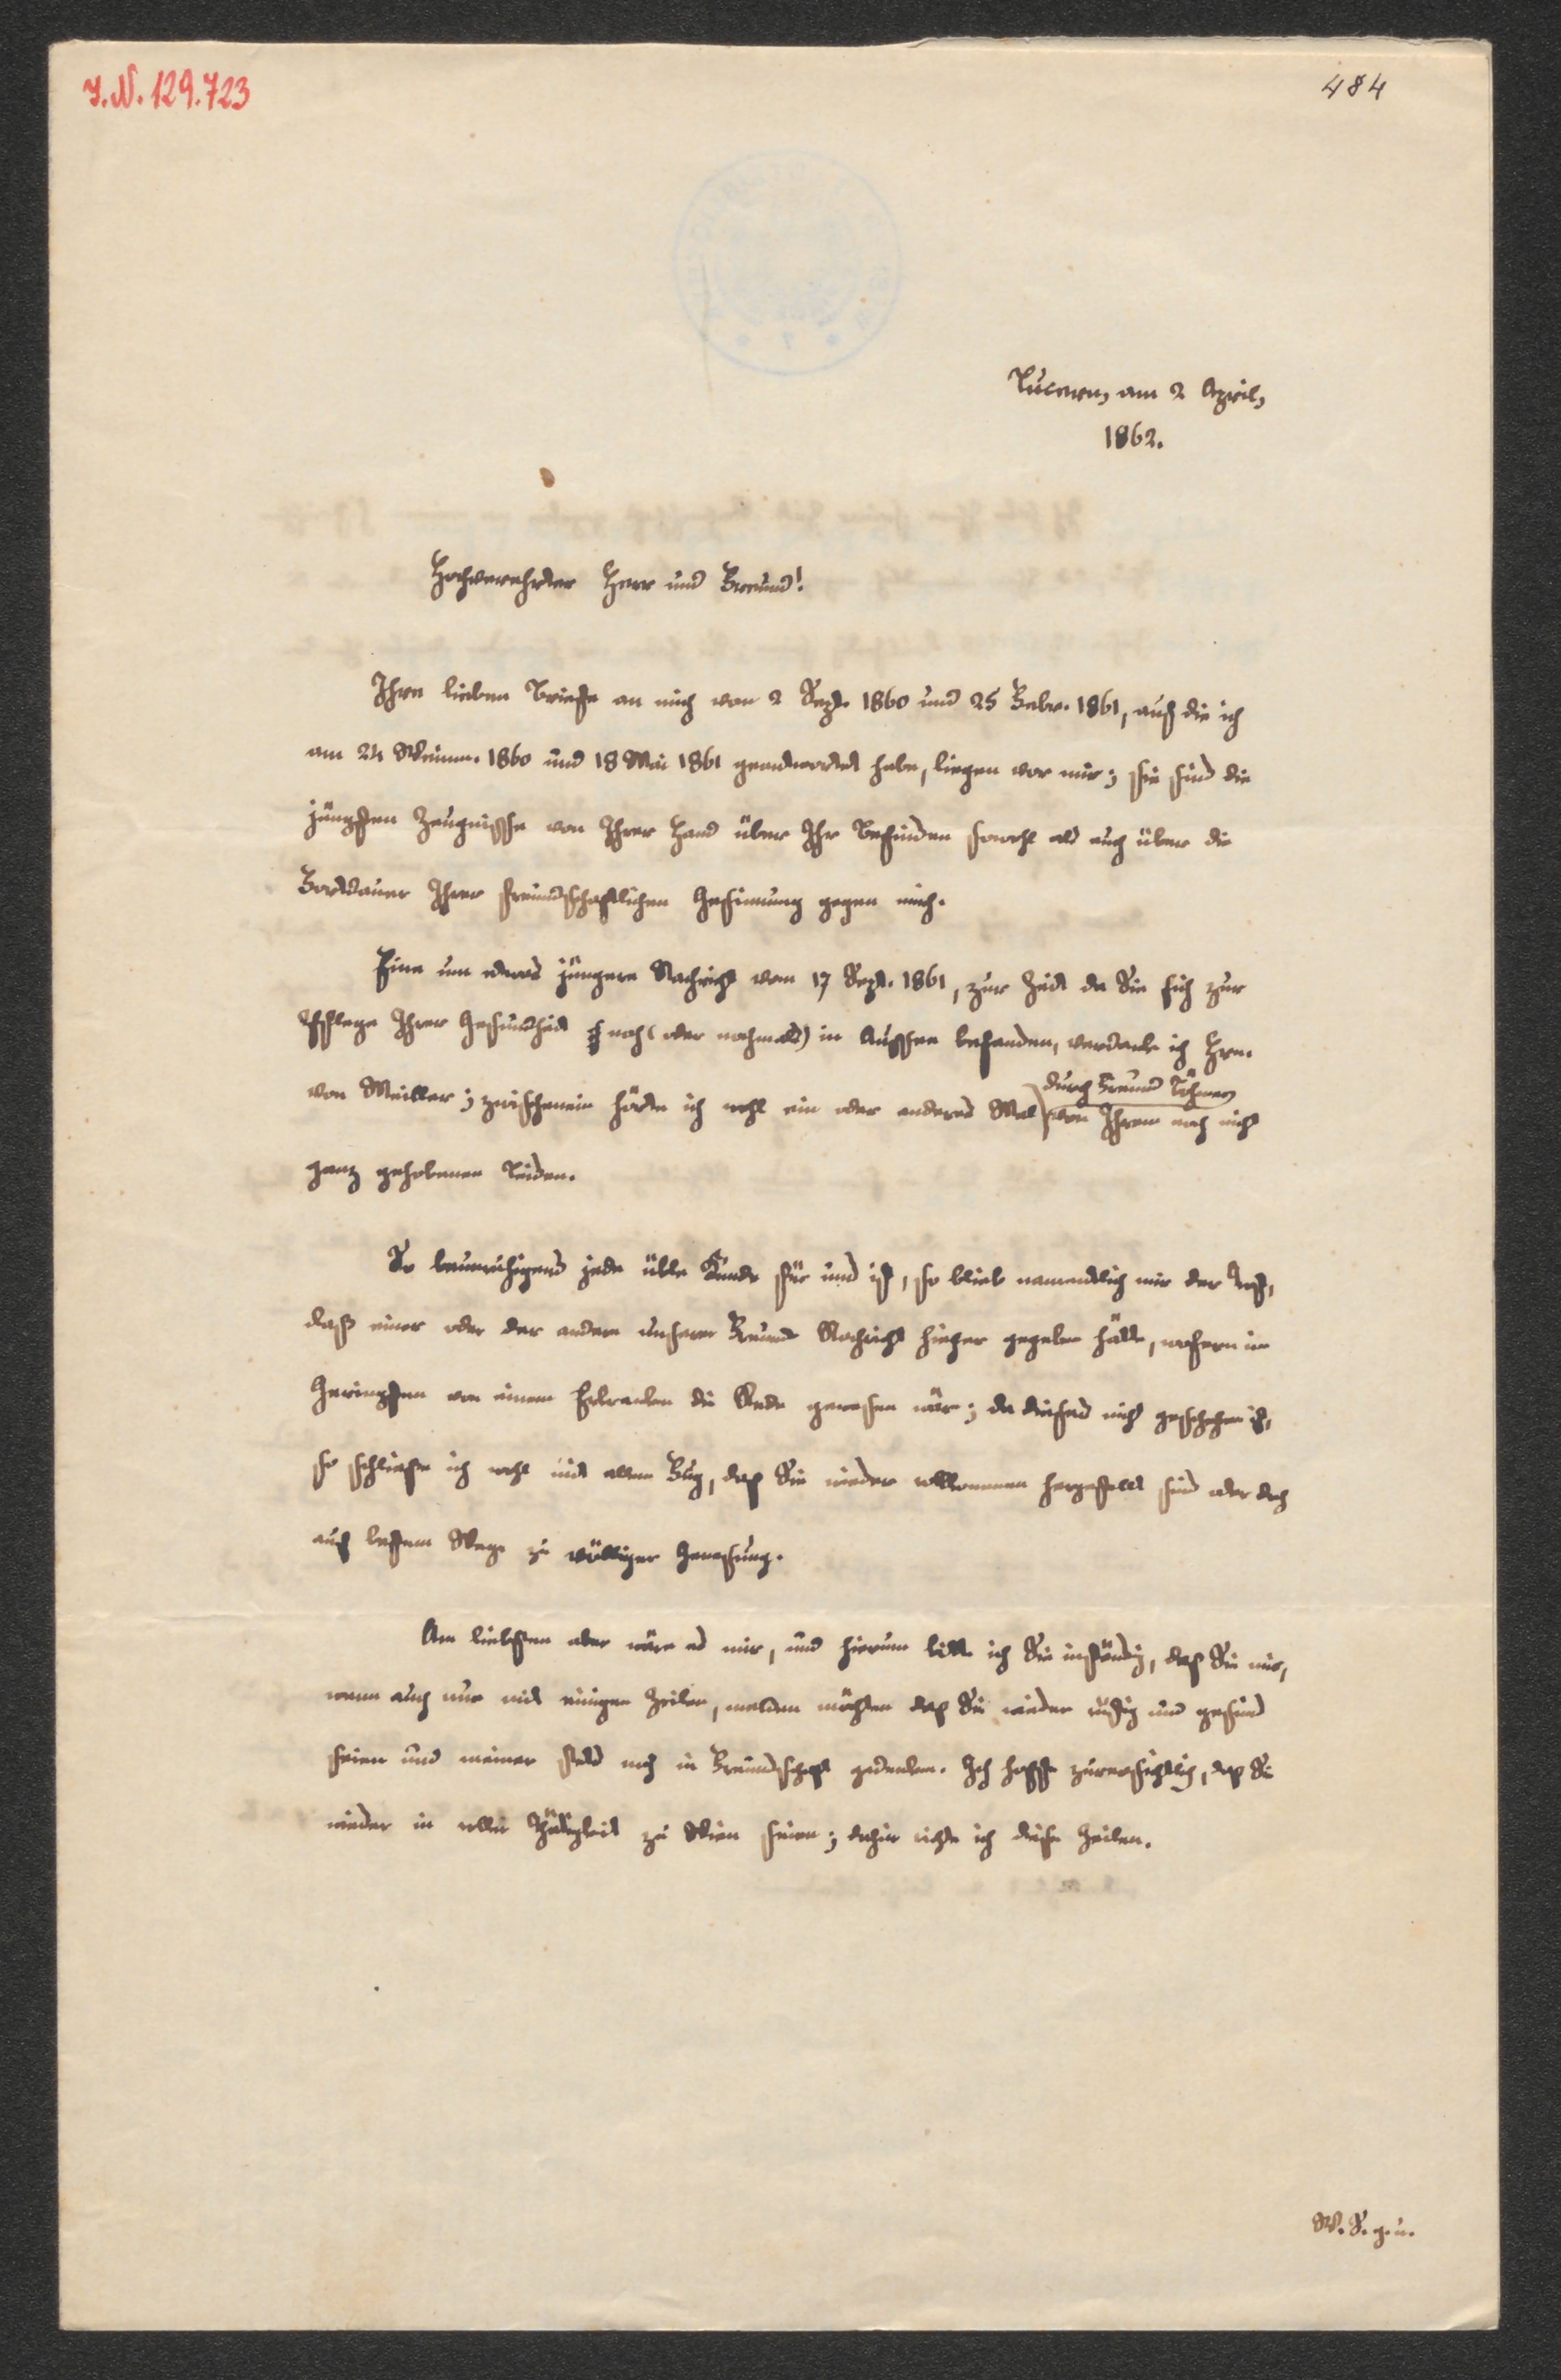 I. N. 129.723
484
Lucern, am 2 April,
1862.
Hochverehrter Herr und Freund!
Ihre lieben Briefe an mich von 2 Sept. 1860 und 25 Febr. 1861, auf die ich
am 24 Weinm. 1860 und 18 Mai 1861 geantwortet habe, liegen vor mir; sie sind die
jüngsten Zeugnisse von Ihrer Hand über Ihr Befinden sowohl als auch über die
Fortdauer Ihrer freundschaftlichen Gesinnung gegen mich.
Eine um etwas jüngere Nachricht vom 17 Sept. 1861, zur Zeit da Sie sich zur
Pflege Ihrer Gesundheit noch (oder nochmals) in Aussee befanden, verdanke ich Hrn.
von Meiller; zwischenein hörte ich wohl ein oder anderes Mal
durch Freund
von Ihrem noch nicht
ganz gehobenen Leiden.
So beunruhigend jede üble Kunde für uns ist, so blieb namentlich mir der Trost,
daß einer oder der andere unserer Freunde Nachricht hieher gegeben hätte, wofern im
Geringsten von einem Erkranken die Rede gewesen wär; da dieses nicht geschehen ist,
so schließe ich wohl mit allem Fug, daß Sie wieder vollkommen hergestellt sind oder doch
auf bestem Wege zu völliger Genesung.
Am liebsten aber wäre es mir, und hierum bitte ich Sie inständig, daß Sie mir,
wenn auch nur mit einigen Zeilen, melden möchten daß Sie wieder rüstig und gesund
seien und meiner stets noch in Freundschaft gedenken. Ich hoffe zuversichtlich, daß Sie
wieder in voller Thätigkeit zu Wien seien; dahin richte ich diese Zeilen.
W. S. g. u.